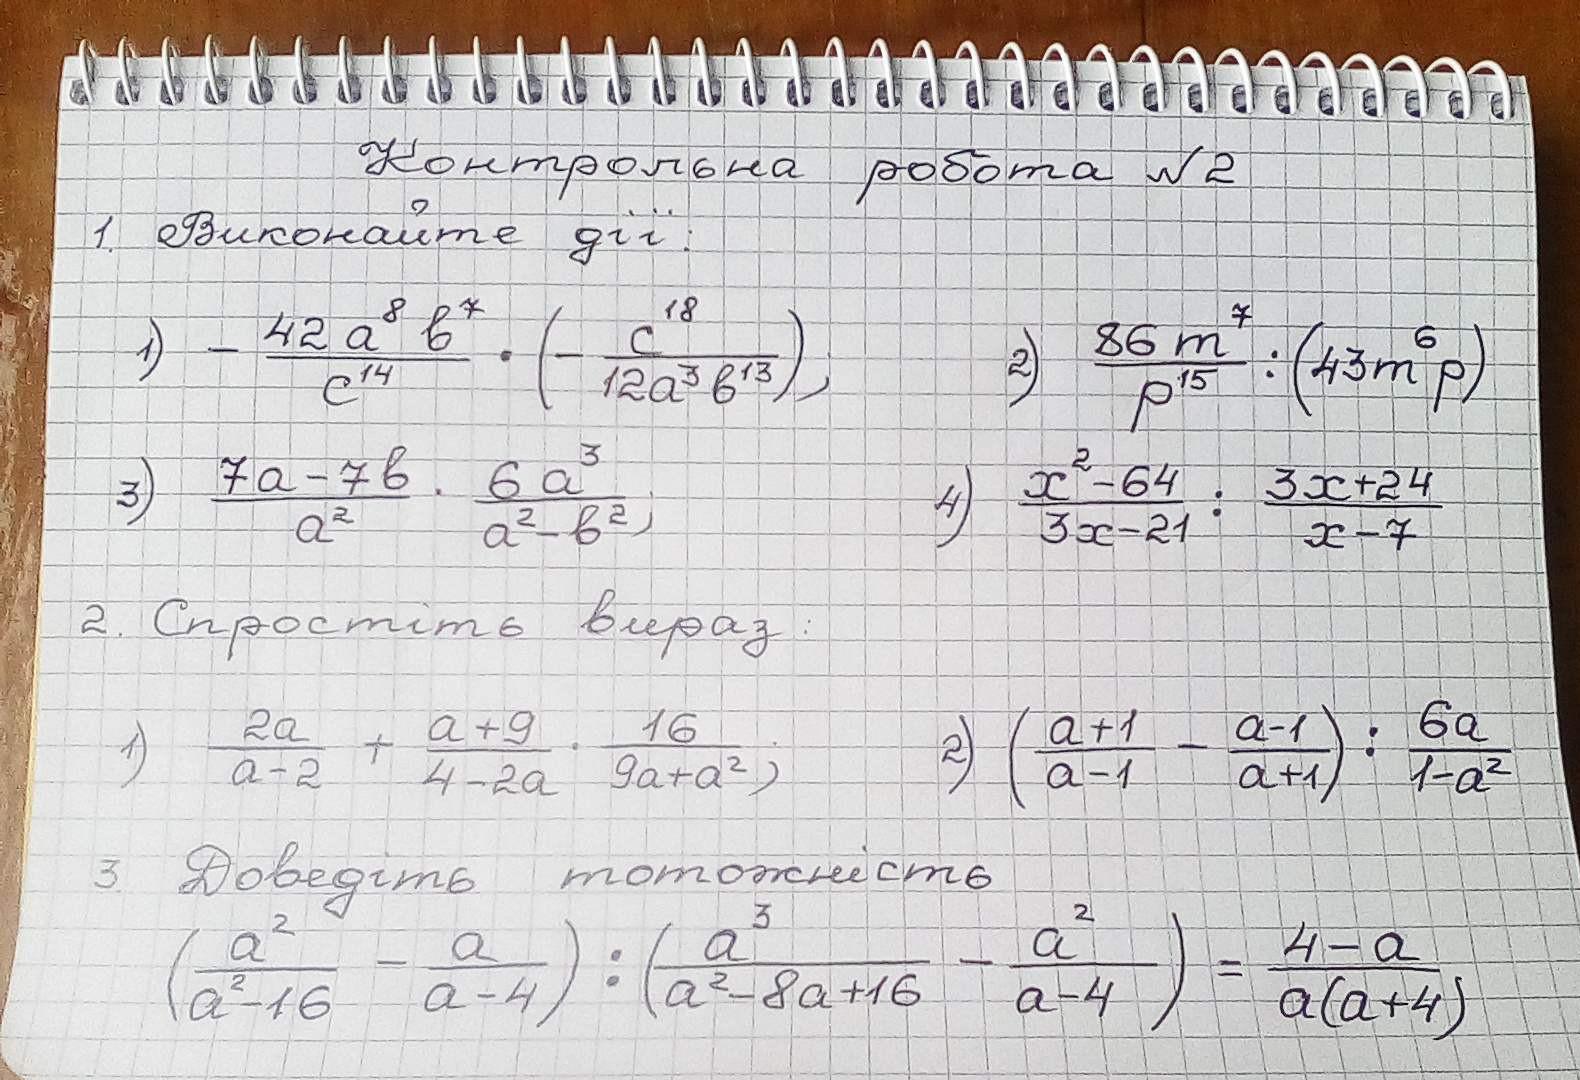 Контрольна робота №2
1. Виконайте дії:
1) - \frac{42a^8b^7}{c^{14}} · (- \frac{c^{18}}{12a^3b^{13}}); 2) \frac{86m^7}{p^{15}} : (43m^6p)
3) \frac{7a-7b}{a^2} · \frac{6a^3}{a^2-b^2}; 4) \frac{x^2-64}{3x-21} : \frac{3x+24}{x-7}
2. Спростіть вираз:
1) \frac{2a}{a-2} + \frac{a+9}{4-2a} · \frac{16}{9a+a^2}; 2) (\frac{a+1}{a-1} - \frac{a-1}{a+1}) : \frac{6a}{1-a^2}
3. Доведіть тотожність
(\frac{a^2}{a^2-16} - \frac{a}{a-4}) : (\frac{a^3}{a^2-8a+16} - \frac{a^2}{a-4}) = \frac{4-a}{a(a+4)}